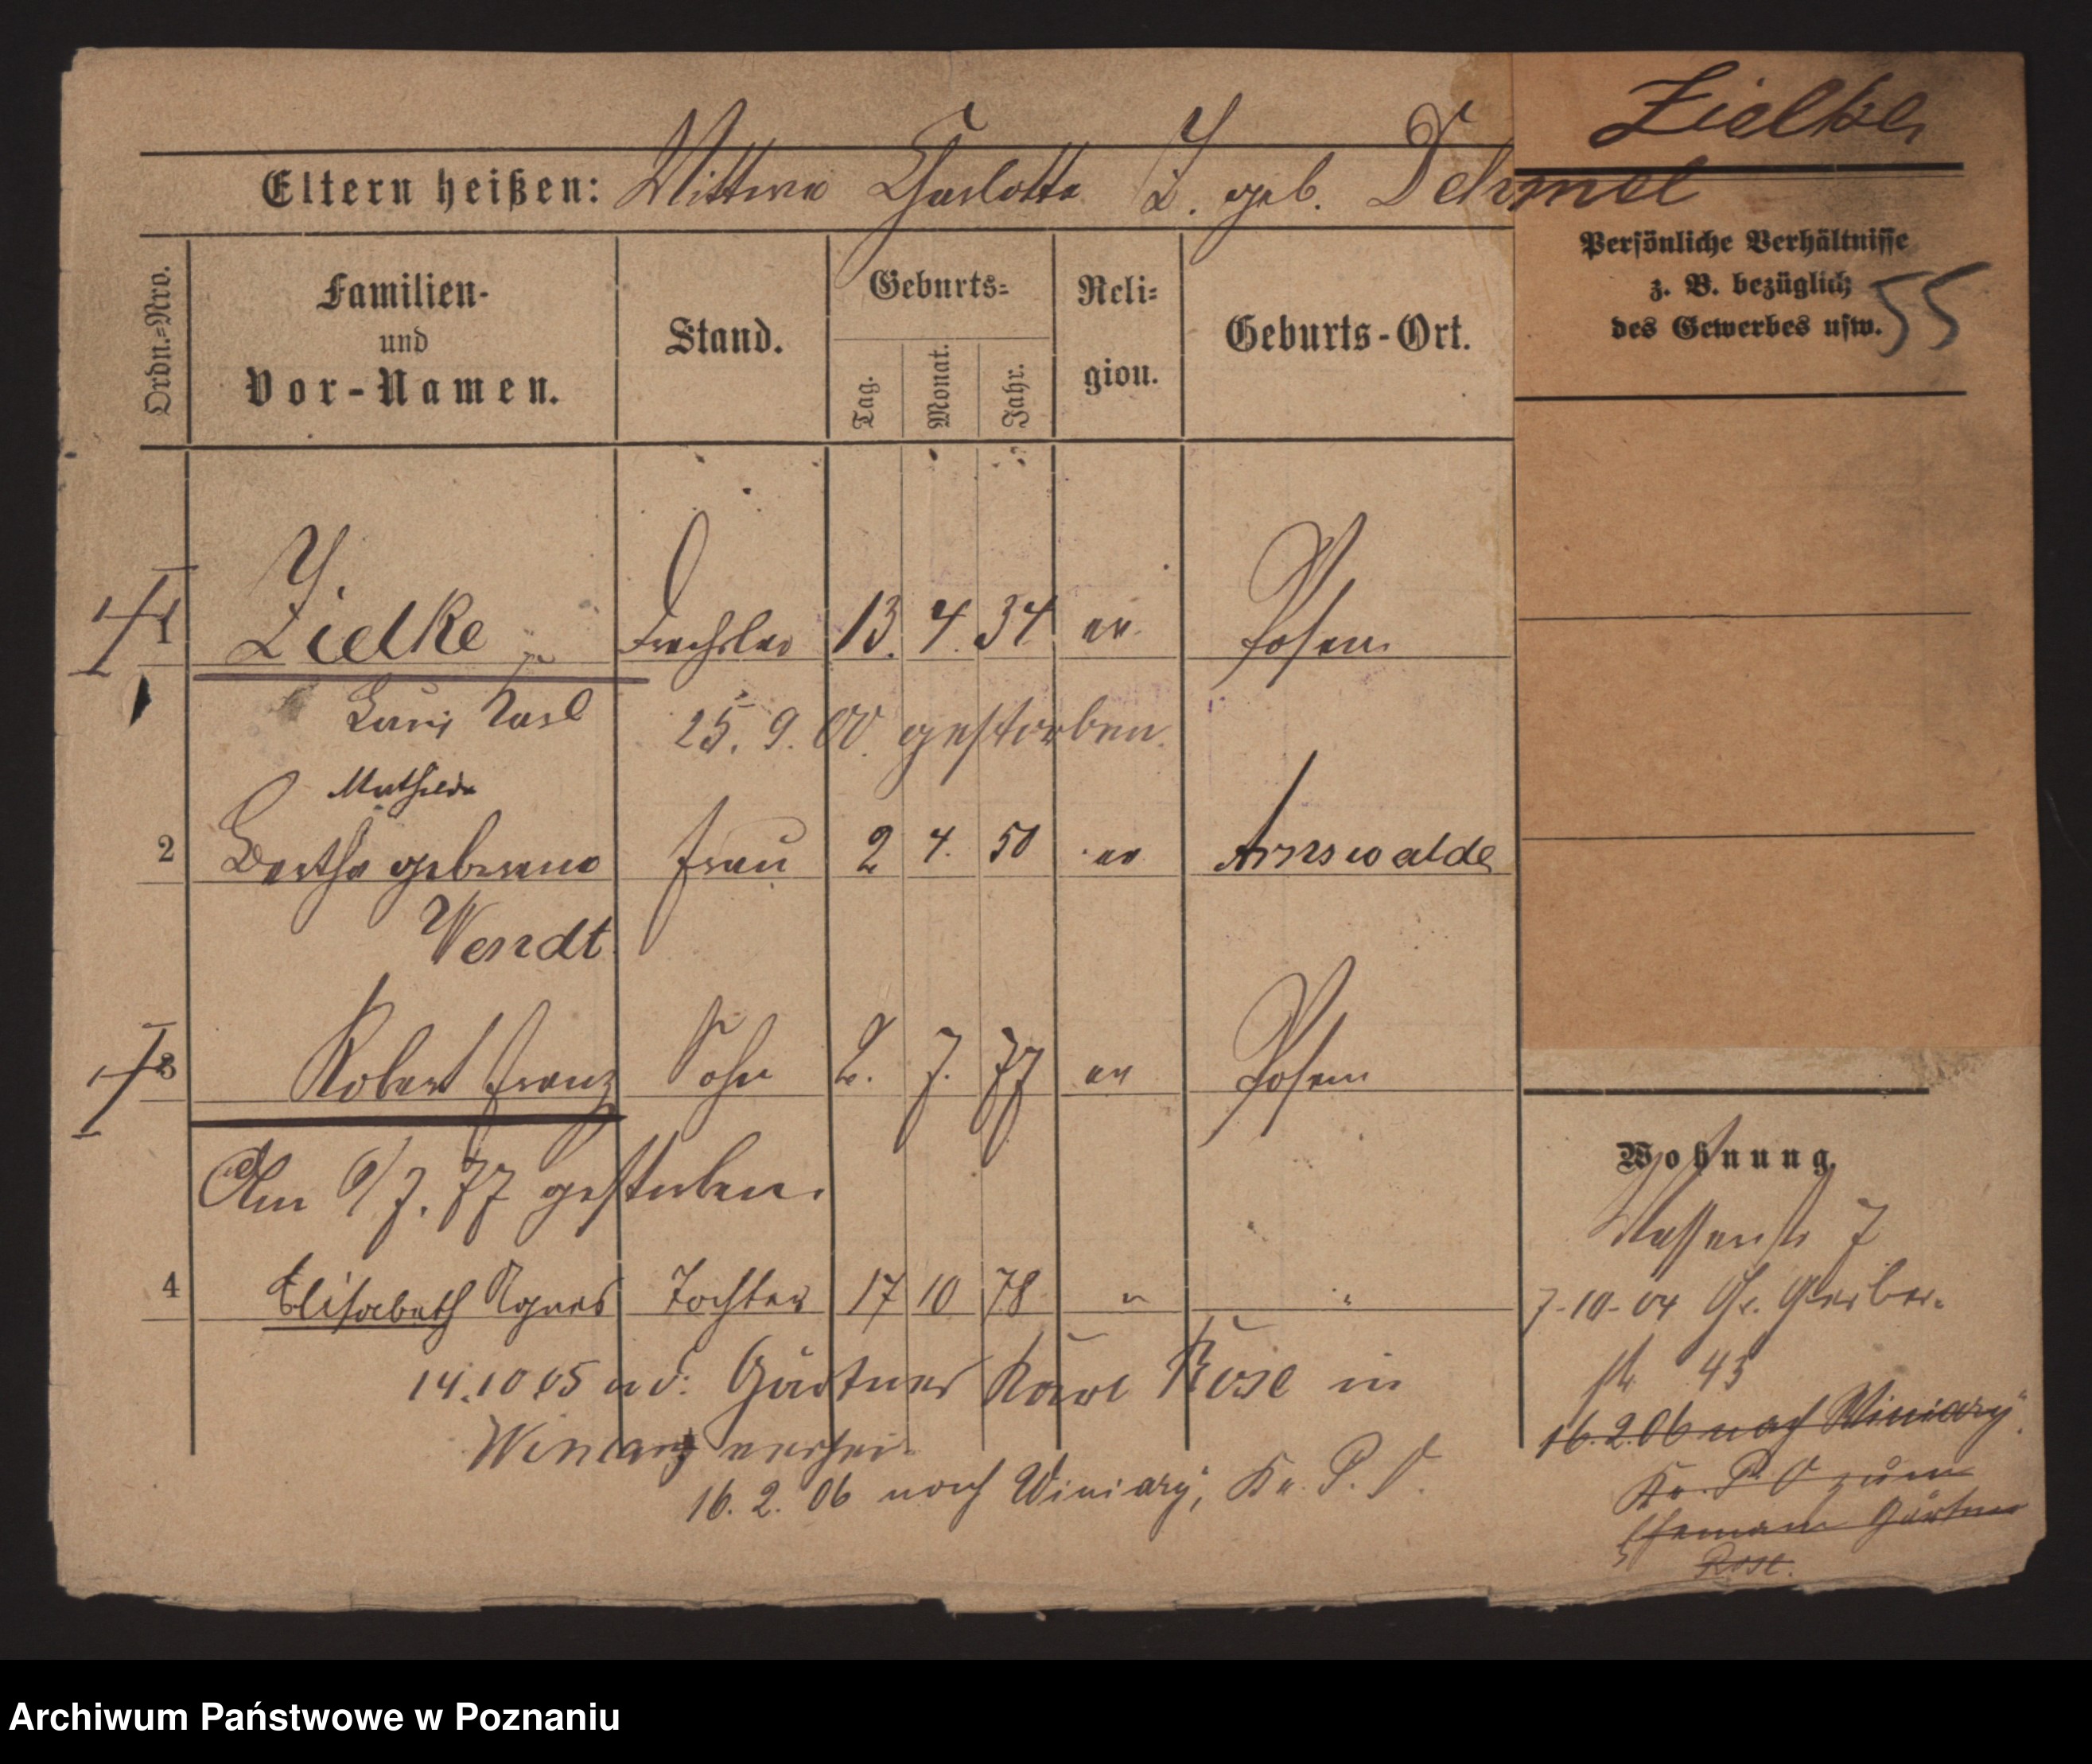 Zielke
Eltern heißen: Wittwe Charlotte Z. geb. Dehmel
Ordn.=Nro.
Familien-
und
Vor-Namen.
Stand.
Geburts=
Tag.
Monat.
Jahr.
Reli=
gion.
Geburts-Ort.
Persönliche Verhältnisse
z. B. bezüglich
des Gewerbes usw.
55
1 Zielke Drechsler 13. 4. 34 ev. Posen
Louis Karl 25. 9. 00. gestorben.
Mathilde
2 Bertha geborene Frau 2 4. 50 ev Arnswalde
Wendt
3 Robert Franz Sohn 2. 7. 77 ev Posen
Am 9/7. 77 gestorben.
4 Elisabeth Agnes Tochter 17 10 78 " "
14.10 05 a d. Gärtner Karl Rose in
Winiary verhei-
16. 2. 06 nach Winiary, Kr. P. O.
Wohnung.
7
7-10-04 Gr. Gerber-
str 43
16.2.06 nach Winiary
Kr. P. O zum
Ehemann Gärtner
Rose.
Archiwum Państwowe w Poznaniu